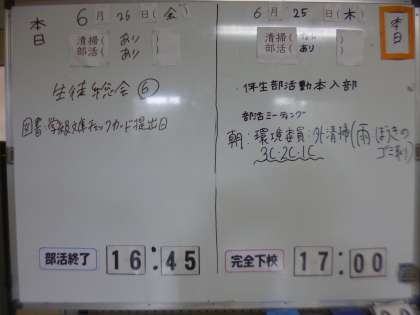 本日
6月26日(金)
清掃(あり)
部活(あり)
生徒総会⑥
図書:学級文庫チェックカード提出日
部活終了 16:45
本日
6月25日(木)
清掃(なし)
部活(あり)
・1年生部活動本入部
部活ミーティング
朝:環境委員:外清掃(雨 ほうきの
ゴミ取り)
3C・2C・1C
完全下校 17:00